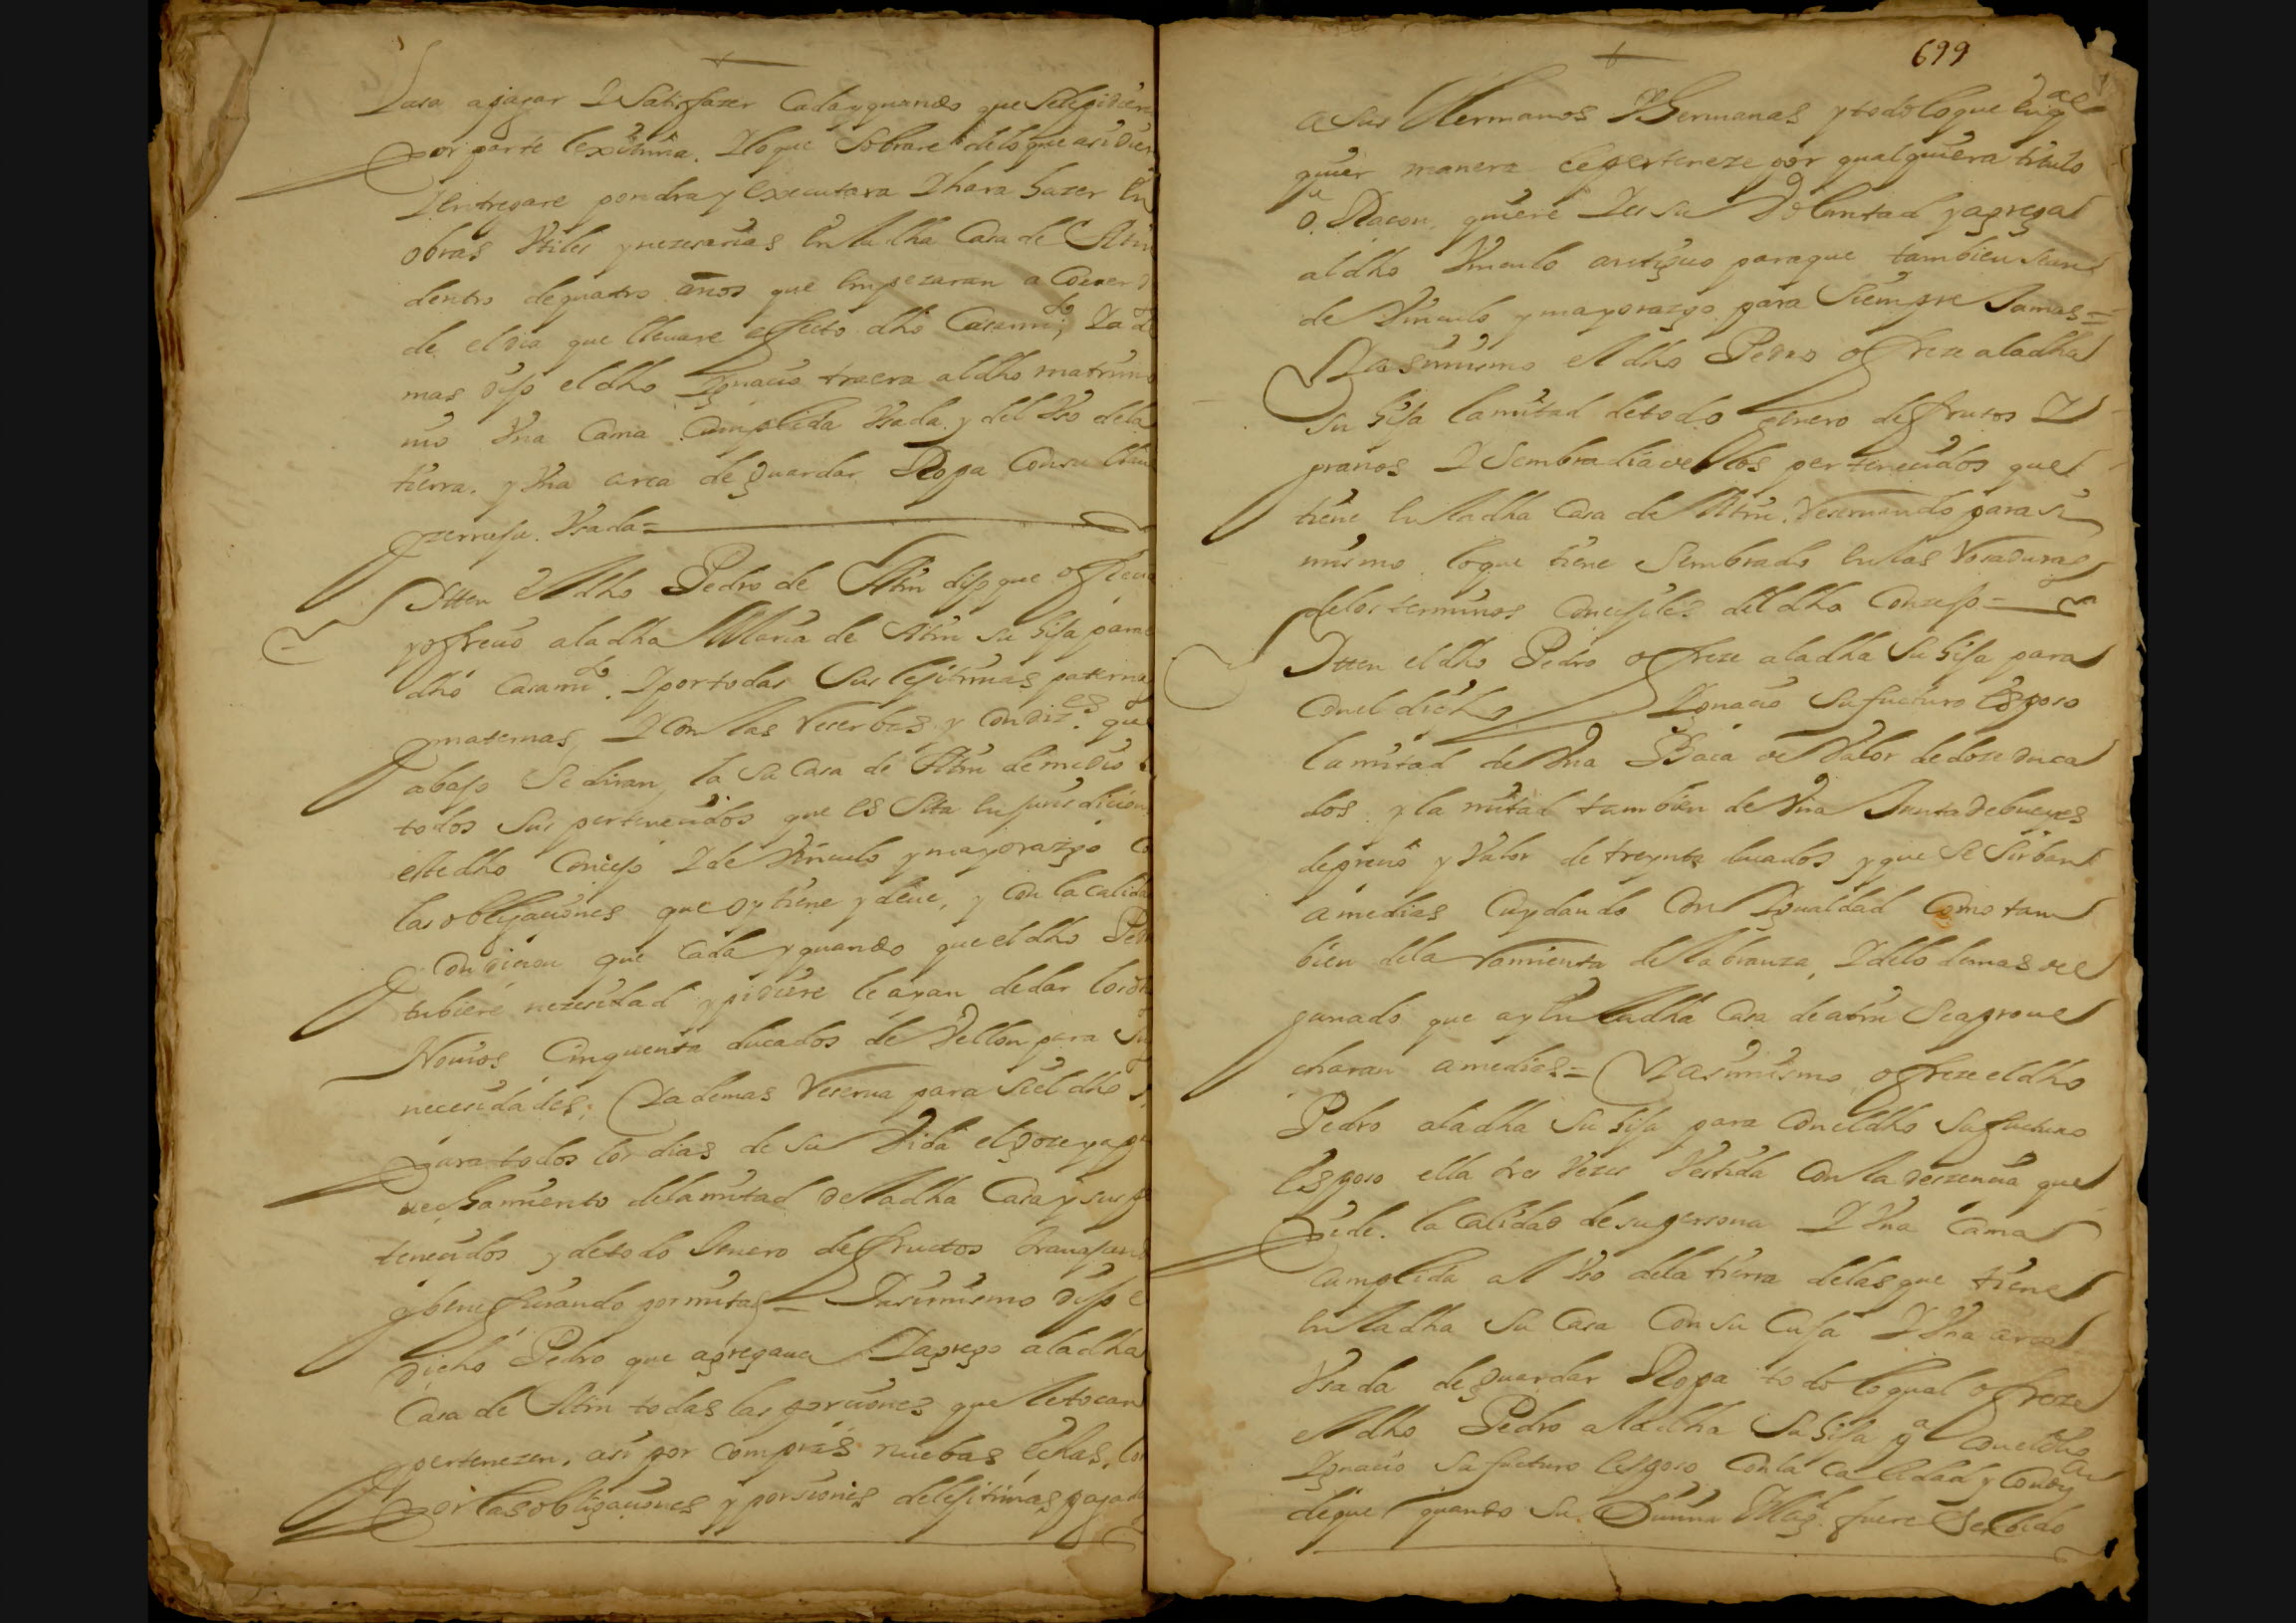 para apagar Y Satisfazer Cada y quando que Sele pidiere
por parte lexitima. Y lo que Sobrare delo que asi dier
Y entregare pondra y executara Y hara hazer En
obras Utiles y nezesarias En la dha Casa de Atin
dentro de quatro años que Empezaran a Correr d
de el dia que llevare effecto dho Casami.to, Y a de
mas dijo el dho Ygnacio traera al dho matrimo
nio Una Cama Cumplida Usada y del Uso dela
tierra. y Una arca de guardar Ropa Con su llaue
y zerraja. Usada=
Itten el dho Pedro de Atin dijo que ofrecia
y ofrecio ala dha Maria de Atin su hija para
dho Casami.to Y por todas Sus lejitimas paterna
y maternas, Y Con las Reserbas y Condiz.es que
abajo Se diran, la Su Casa de Atin de medio
todos Sus pertenecidos que es Sita En jurisdicion
este dho Concejo Y de Vinculo y mayorazgo Co
las obligaciones que oy tiene y deue, y Con la Calida
y Condicion que Cada y quando que el dho Ped
tubiere nezesidad y pidiere le ayan de dar los d
Nouios Cinquenta ducados de Vellon para Su
necesidades; Y ademas Reserua para Si el dho
para todos los dias de Su Vida el goze y apr
uechamiento dela mitad de la dha Casa y sus p
tenecidos y de todo Genero de fructos trauajan
y beneficiando por mitad = Y asimismo dijo e
dicho Pedro que agregaua Y agrego ala dha
Casa de Atin todas las porciones que le tocan
y pertenezen, asi por compras nuebas echas, Co
por las obligaciones y porsiones de lejitimas pagad
699
a Sus Hermanos Y Hermanas y todo lo que En q.al
quier manera le perteneze por qualquiera titulo
o Racon, quiere Y es su Voluntad y agrega
al dho Vinculo antiguo para que tambien Sean
de Vinculo y mayorazgo para Siempre Jamas=
Y asimismo el dho Pedro ofreze ala dha
Su hija la mitad de todo genero de frutos Y
granos Y Sembradia de los pertenecidos que
tiene En la dha Casa de Atin. Reseruando para si
mismo lo que tiene Sembrado En las Rosaduras
de los terminos Concejiles del dho Conzejo=
Itten el dho Pedro ofreze ala dha Su hija para
Con el dicho Ygnacio Su fucturo Esposo
la mitad de Una Baca de Valor de doze duca
dos y la mitad tambien de Una Junta de bueyes
de precio y Valor de treynta ducados y que Se Sirban
a medias Cuydando Con Ygualdad Como tam
bien dela ramienta de labranza, Y delo demas de
ganado que ay En la dha Casa de atin Se aproue
charan a medias= Y asimismo ofreze el dho
Pedro ala dha Su hija para Con el dho Su fucturo
Esposo ella tres Vezes Vestida Con la deszencia que
pide la Calidad de su persona Y Una Cama
Cumplida al Uso dela tierra delas que tiene
En la dha Su Casa Con su Cuja Y Una arca
Usada de guardar Ropa todo lo qual ofreze
el dho Pedro ala dha Su hija p.a Con el dho
Ygnacio Su fucturo Esposo Con la Calidad y Condi
de que quando Su Diuina Mag.d fuere Serbido